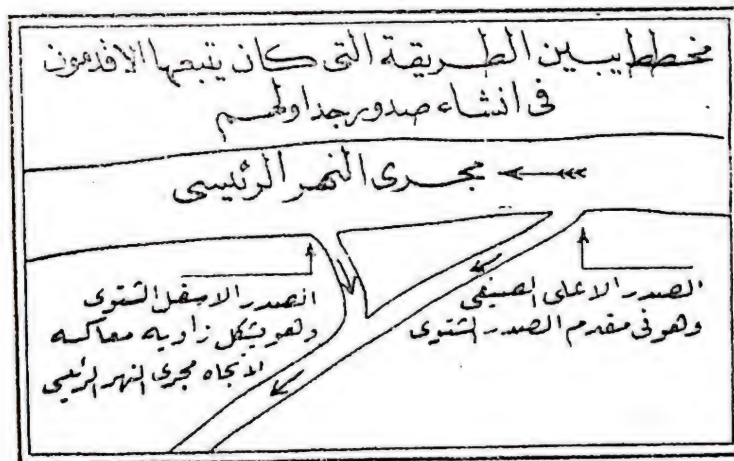 مخطط يبين الطريقة التى كان يتبعها الاقدمون
فى انشاء صدور جداولهم
مجرى النهر الرئيسى
الصدر الاعلى الصيفي
وهو فى مقدم الصدر الشتوى
الصدر الاسفل الشتوى
وهو يشكل زاويه معاكسه
لاتجاه مجرى النهر الرئيسي